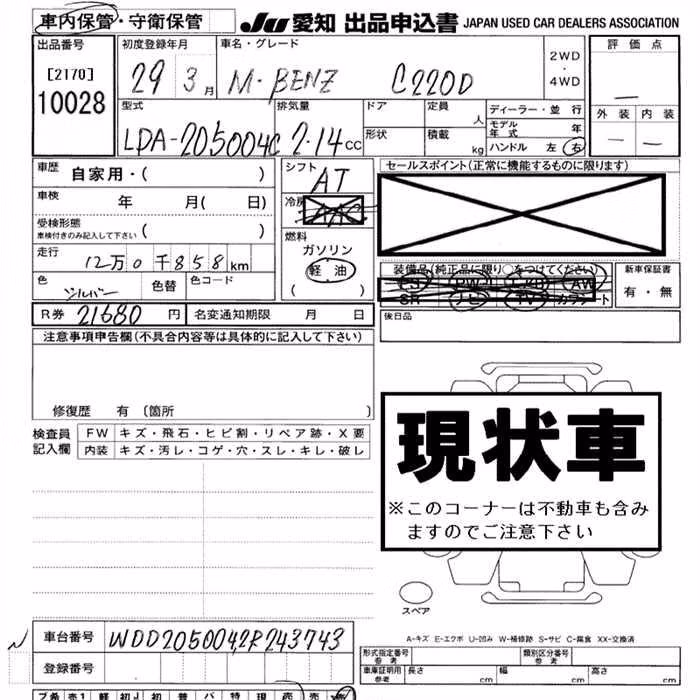 車内保管・守衛保管
JU 愛知 出品申込書 JAPAN USED CAR DEALERS ASSOCIATION
出品番号 初度登録年月 車名・グレード 評価点
[2170] 29 3月 M・BENZ C220D 2WD・4WD
10028
型式 排気量 ドア 定員 人 ディーラー・並行 外装 内装
LDA-205004C 2.14CC 形状 積載 kg モデル年式 年
ハンドル 左 右
車歴 自家用・( ) シフト AT セールスポイント(正常に機能するものに限ります)
車検 年 月( 日) 冷房 AAC
受検形態 車検付きのみ記入して下さい ( ) 燃料 ガソリン
走行 12万0千858km 軽油 装備品(純正品に限り○をつけてください) 新車保証書
色 シルバー 色替 色コード ( ) PS PW AW 有・無
SR ナビ TV カワシート
R券 21680円 名変通知期限 月 日 後日品
注意事項申告欄(不具合内容等は具体的に記入して下さい)
修復歴 有 〔箇所 〕
現状車
※このコーナーは不動車も含み
ますのでご注意下さい
検査員 FW キズ・飛石・ヒビ割・リペア跡・X要
記入欄 内装 キズ・汚レ・コゲ・穴・スレ・キレ・破レ
スペア
車台番号 WDD2050042R243743 A-キズ E-エクボ U-凹み W-補修跡 S-サビ C-腐食 XX-交換済
登録番号 形式指定番号 参考 類別区分番号 参考
車庫証明用 参考 長さ cm 幅 cm 高さ cm